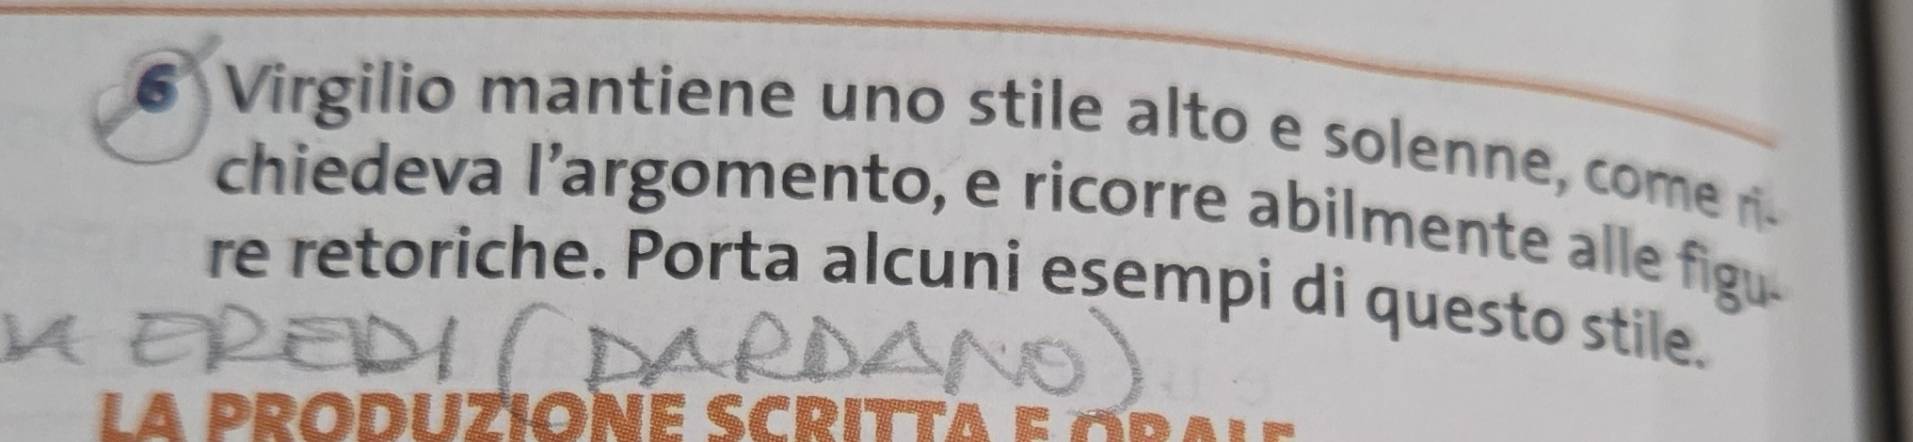 6 Virgilio mantiene uno stile alto e solenne, come ri-
chiedeva l'argomento, e ricorre abilmente alle figu-
re retoriche. Porta alcuni esempi di questo stile.
EREDI (DARDANO)
LA PRODUZIONE SCRITTA E ORALE